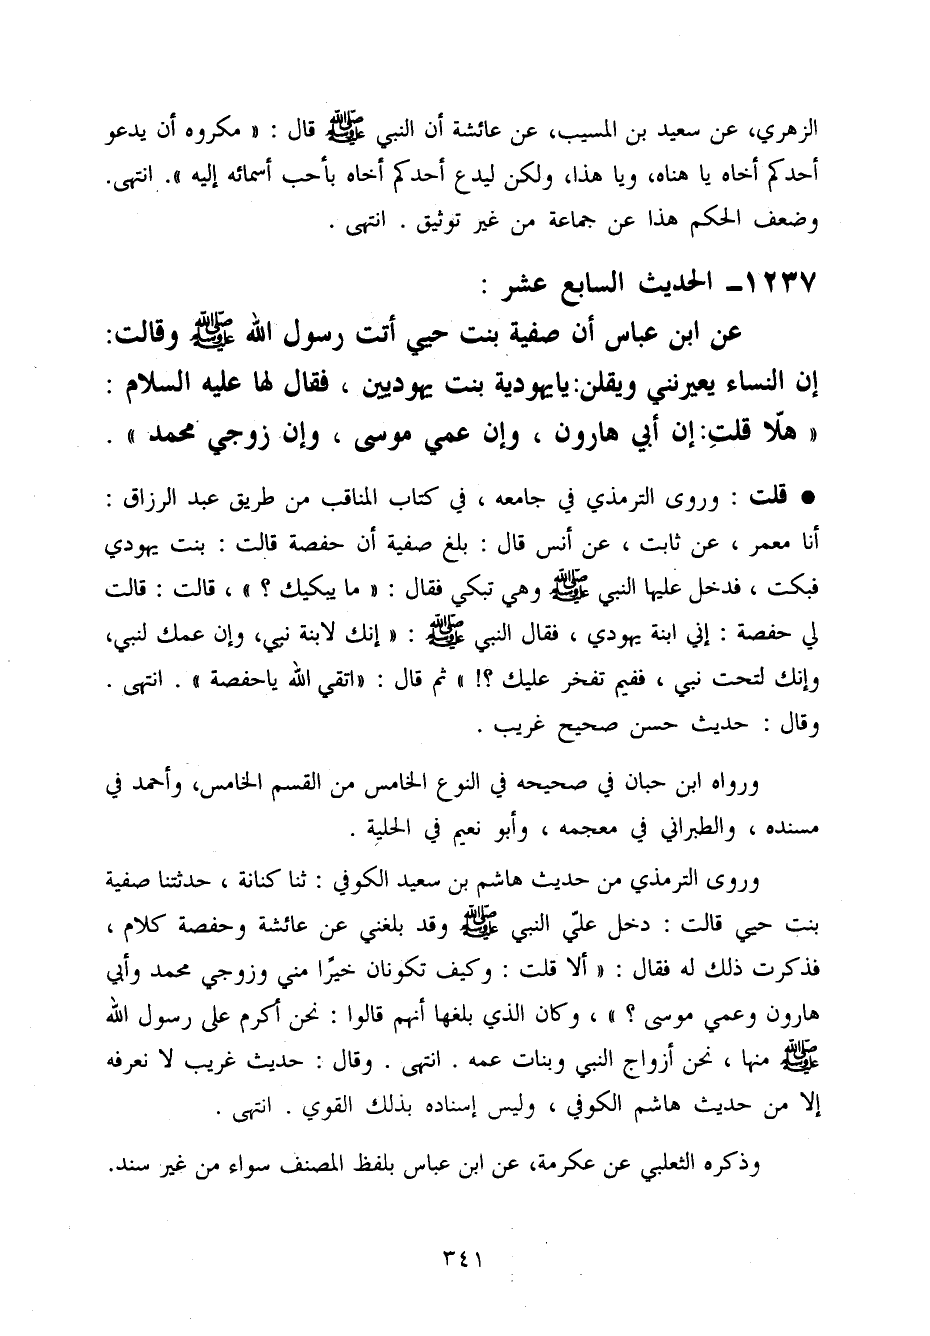 الزهري، عن سعيد بن المسيب، عن عائشة أن النبي ﷺ قال : « مكروه أن يدعو
أحدكم أخاه يا هناه، ويا هذا، ولكن ليدع أحدكم أخاه بأحب أسمائه إليه ». انتهى.
وضعف الحكم هذا عن جماعة من غير توثيق . انتهى .
١٢٣٧ـ الحديث السابع عشر :
عن ابن عباس أن صفية بنت حيي أتت رسول الله ﷺ وقالت:
إن النساء يعيرنني ويقلن:يايهودية بنت يهوديين ، فقال لها عليه السلام :
« هلّا قلتِ:إن أبي هارون ، وإن عمي موسى ، وإن زوجي محمد » .
● قلت : وروى الترمذي في جامعه ، في كتاب المناقب من طريق عبد الرزاق :
أنا معمر ، عن ثابت ، عن أنس قال : بلغ صفية أن حفصة قالت : بنت يهودي
فبكت ، فدخل عليها النبي ﷺ وهي تبكي فقال : « ما يبكيك ؟ » ، قالت : قالت
لي حفصة : إني ابنة يهودي ، فقال النبي ﷺ : « إنك لابنة نبي، وإن عمك لنبي،
وإنك لتحت نبي ، ففيم تفخر عليك ؟! » ثم قال : «اتقي الله ياحفصة » . انتهى .
وقال : حديث حسن صحيح غريب .
ورواه ابن حبان في صحيحه في النوع الخامس من القسم الخامس، وأحمد في
مسنده ، والطبراني في معجمه ، وأبو نعيم في الحلية .
وروى الترمذي من حديث هاشم بن سعيد الكوفي : ثنا كنانة ، حدثتنا صفية
بنت حيي قالت : دخل عليّ النبي ﷺ وقد بلغني عن عائشة وحفصة كلام ،
فذكرت ذلك له فقال : « ألا قلت : وكيف تكونان خيرًا مني وزوجي محمد وأبي
هارون وعمي موسى ؟ » ، وكان الذي بلغها أنهم قالوا : نحن أكرم على رسول الله
ﷺ منها ، نحن أزواج النبي وبنات عمه . انتهى . وقال : حديث غريب لا نعرفه
إلا من حديث هاشم الكوفي ، وليس إسناده بذلك القوي . انتهى .
وذكره الثعلبي عن عكرمة، عن ابن عباس بلفظ المصنف سواء من غير سند.
٣٤١